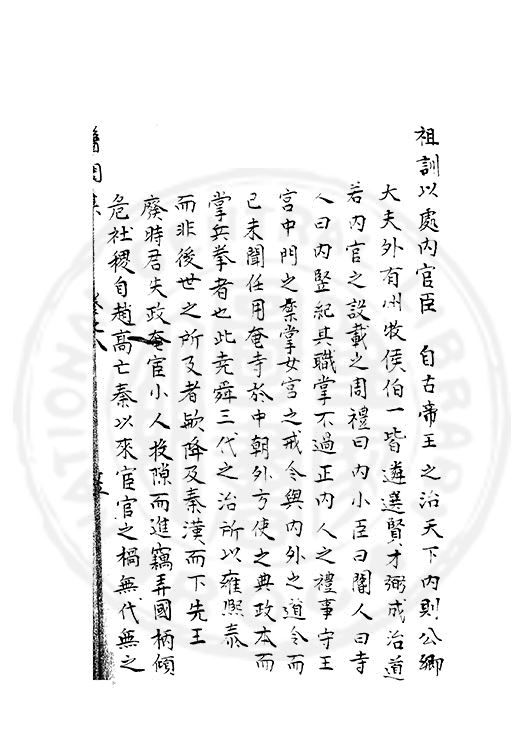 祖訓以處內官臣　自古帝王之治天下內則公卿
大夫外有州牧侯伯一皆遴選賢才弼成治道
若內官之設載之周禮曰內小臣曰閽人曰寺
人曰內竪紀其職掌不過正內人之禮事守王
宮中門之禁掌女宮之戒令與內外之道令而
已未聞任用奄寺於中朝外方使之典政本而
掌兵拳者也此尭舜三代之治所以雍熙泰
而非後世之所及者歟降及秦漢而下先王
廢時君失政奄宦小人投隙而進竊弄國柄傾
危社稷自趙高亡秦以來宦官之禍無代無之